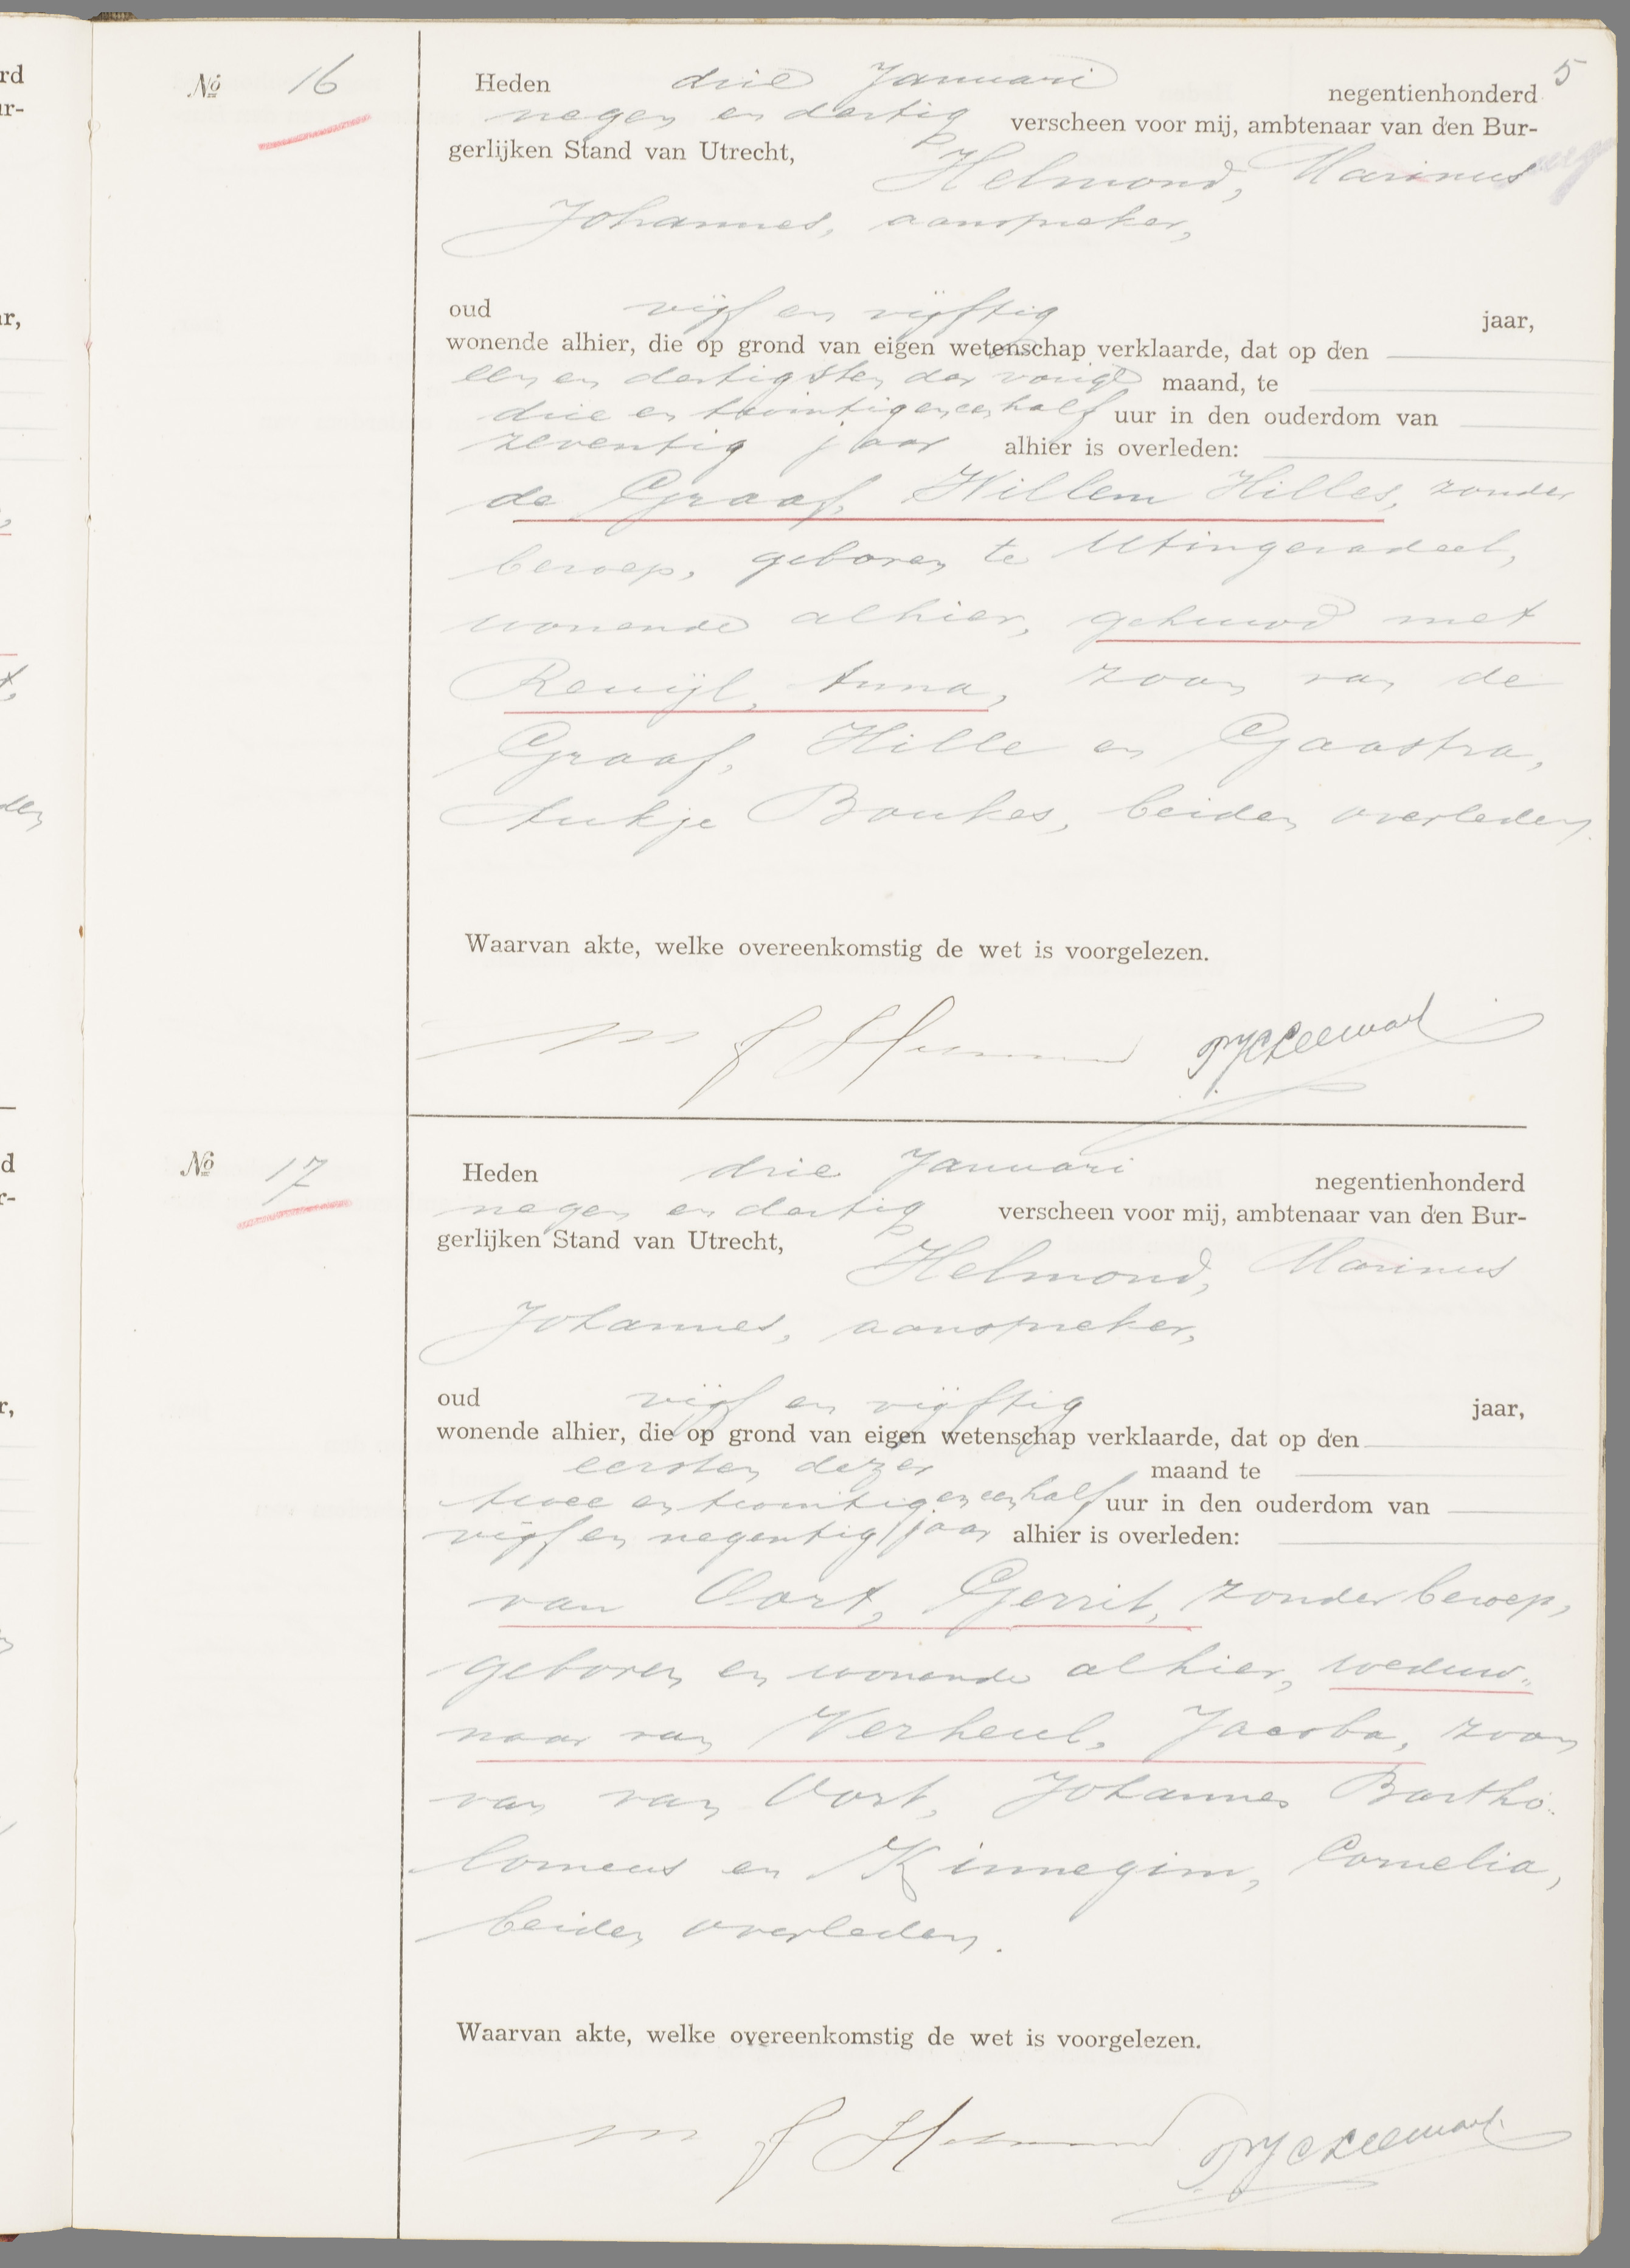 5
Nº 16
Heden drie Januari negentienhonderd
negen en dertig verscheen voor mij, ambtenaar van den Bur-
gerlijken Stand van Utrecht, Helmond, Marinus
Johannes, aanspreker,
oud vijf en vijftig jaar,
wonende alhier, die op grond van eigen wetenschap verklaarde, dat op den
een en dertigsten der vorige maand, te
drie en twintig en een half uur in den ouderdom van
zeventig jaar alhier is overleden:
de Graaf, Willem Hilles, zonder
beroep, geboren te Utingeradeel,
wonende alhier, gehuwd met
Reuijl, Anna, zoon van de
Graaf, Hille en Gaastra,
Aukje Boukes, beiden overleden.
Waarvan akte, welke overeenkomstig de wet is voorgelezen.
M J Helmond
Nº 17
Heden drie Januari negentienhonderd
negen en dertig verscheen voor mij, ambtenaar van den Bur-
gerlijken Stand van Utrecht, Helmond, Marinus
Johannes, aanspreker,
oud vijf en vijftig jaar,
wonende alhier, die op grond van eigen wetenschap verklaarde, dat op den
eersten dezer maand te
twee en twintig en een half uur in den ouderdom van
vijf en negentig jaar alhier is overleden:
van Oort, Gerrit, zonder beroep,
geboren en wonende alhier, weduw„
naar van Verheul, Jacoba, zoon
van van Oort, Johannes Bartho„
lomeus en Kinnegim, Cornelia,
beiden overleden.
Waarvan akte, welke overeenkomstig de wet is voorgelezen.
M J Helmond